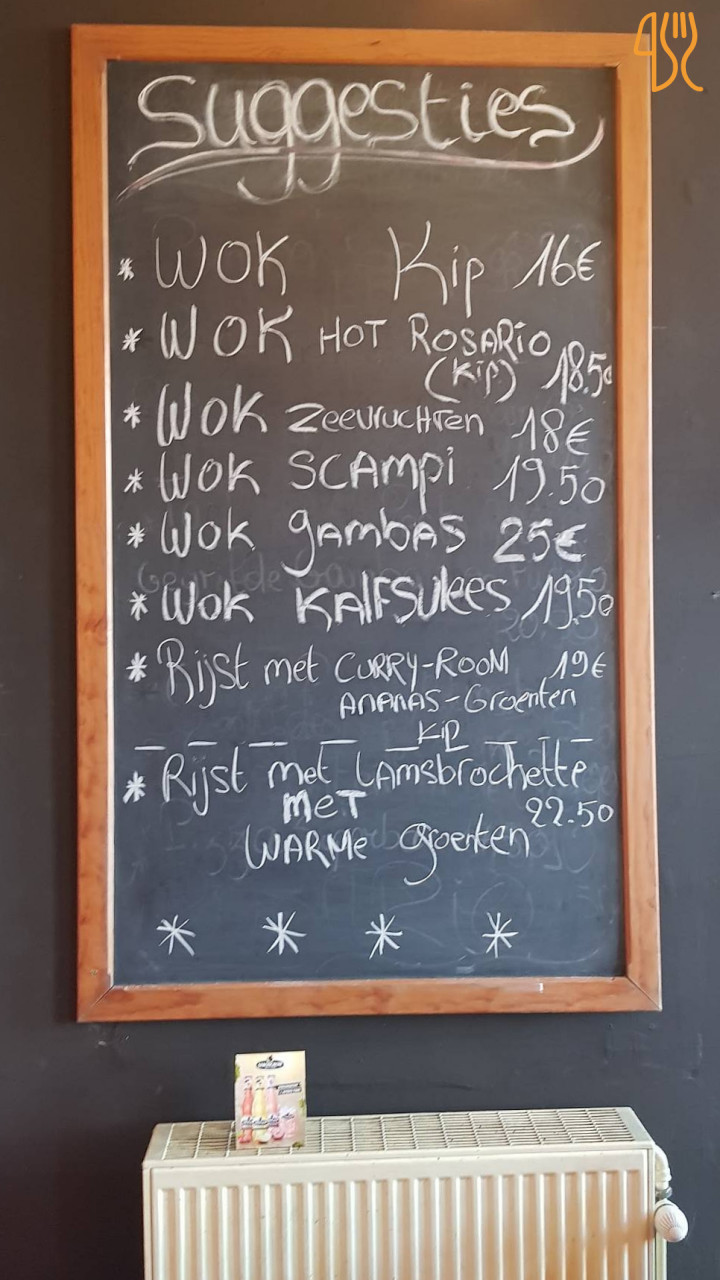 Suggesties
* WOK Kip 16€
* WOK HOT ROSARIO
(Kip) 18.50
* WOK Zeevruchten 18€
* WOK SCAMPI 19.50
* WOK GAMBAS 25€
* WOK KALFSVLEES 19.50
* Rijst met CURRY-ROOM 19€
ANANAS-Groenten
Kip
* Rijst met LAMSbrochette
MET 22.50
WARMe groenten
* * * *